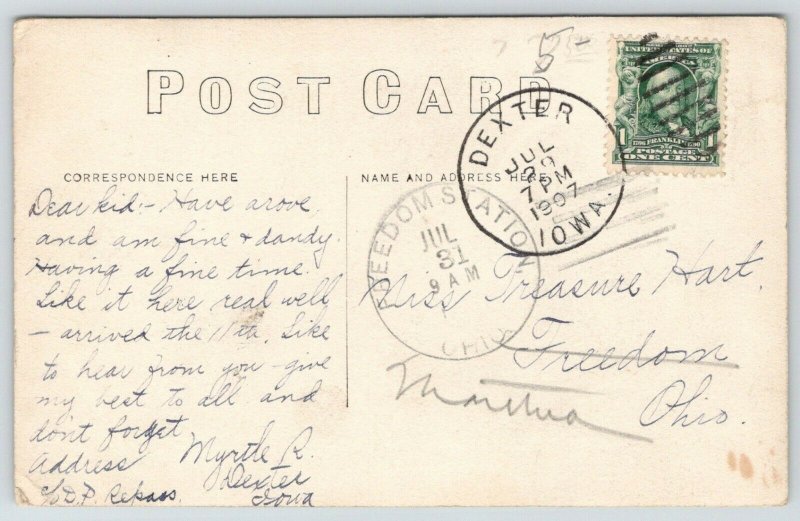 POST CARD
CORRESPONDENCE HERE
NAME AND ADDRESS HERE
UNITED STATES OF
AMERICA
1 FRANKLIN
POSTAGE
ONE CENT
DEXTER
JUL
7 PM
1907
IOWA.
FREEDOM STATION
JUL
31
9 AM
OHIO
Dear kid:- Have arove
and am fine & dandy.
Having a fine time.
Like it here real well
- arrived the 11th. Like
to hear from you - give
my best to all and
dont forget
Address Myrtle R.
Dexter
Iowa
c/o D.P. Repass.
Miss Treasure Hart.
Freedom
Ohio.
Mantua